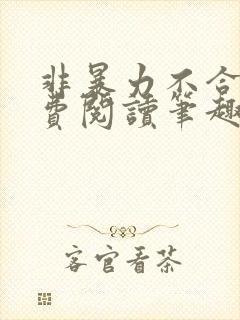 非暴力不合
費閱讀筆趣
客官看茶